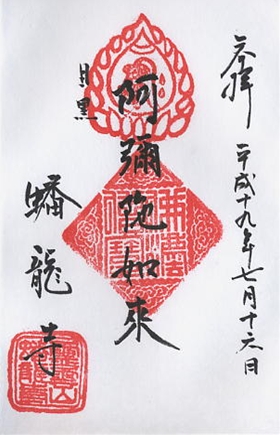 奉拝
平成十九年七月十六日
阿彌陀如來
目黒
蟠龍寺